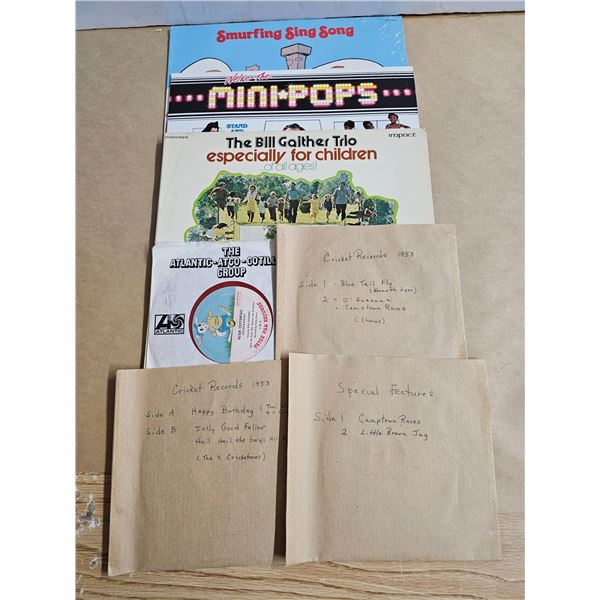 Smurfing Sing Song
We're the
MINI★POPS
STAND
AND
The Bill Gaither Trio
impact
especially for children
of all ages!
THE
ATLANTIC-ATCO-COTILL
GROUP
ATLANTIC
PETER PAN RECORDS
PETER COTTONTAIL
Cricket Records 1953
Side 1 - Blue Tail Fly
(Kenneth Lynn)
2 - O' Susanna
- Camptown Races
(Chorus)
Cricket Records 1953
Side A Happy Birthday
Side B Jolly Good Fellow
Hail Hail the Gang's All
(The 4 Cricketones)
Special Features
Side 1 Camptown Races
2 Little Brown Jug